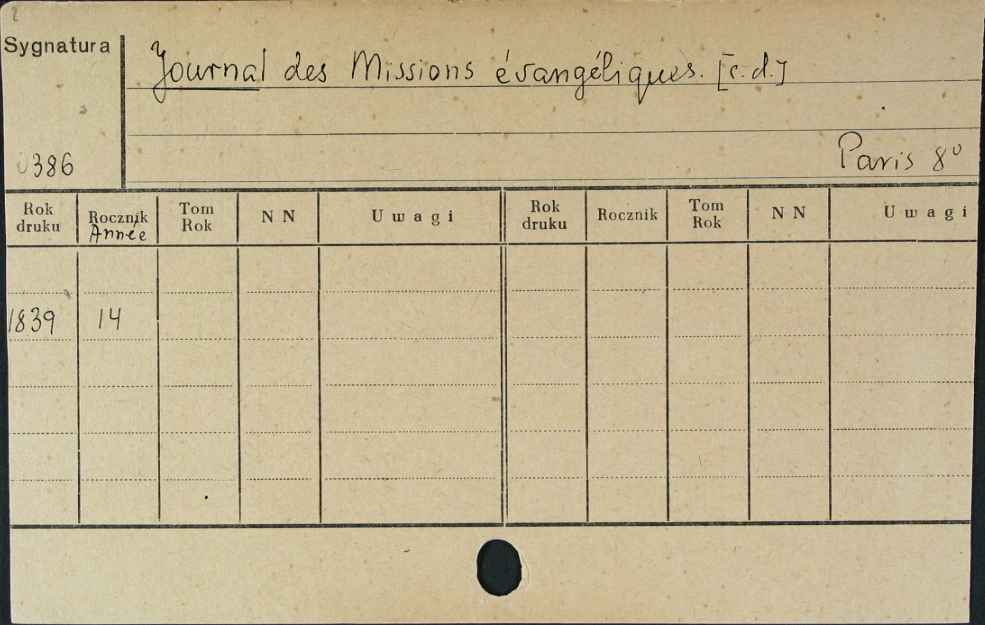 Sygnatura
Journal des Missions évangéliques. [c.d.]
386
Paris 8º
Rok druku Rocznik Année Tom Rok N N Uwagi Rok druku Rocznik Tom Rok N N Uwagi
1839 14